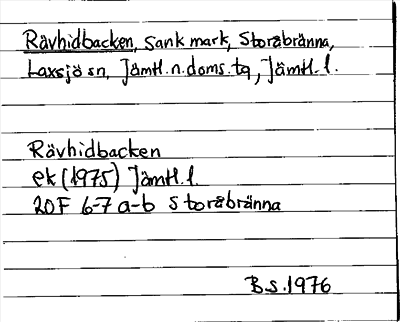 Rävhidbacken, sank mark, Storåbränna,
Laxsjö sn, Jämtl.n.doms.tg, Jämtl.l.
Rävhidbacken
ek (1975) Jämtl.l.
20F 6-7 a-b Storåbränna
B.S.1976